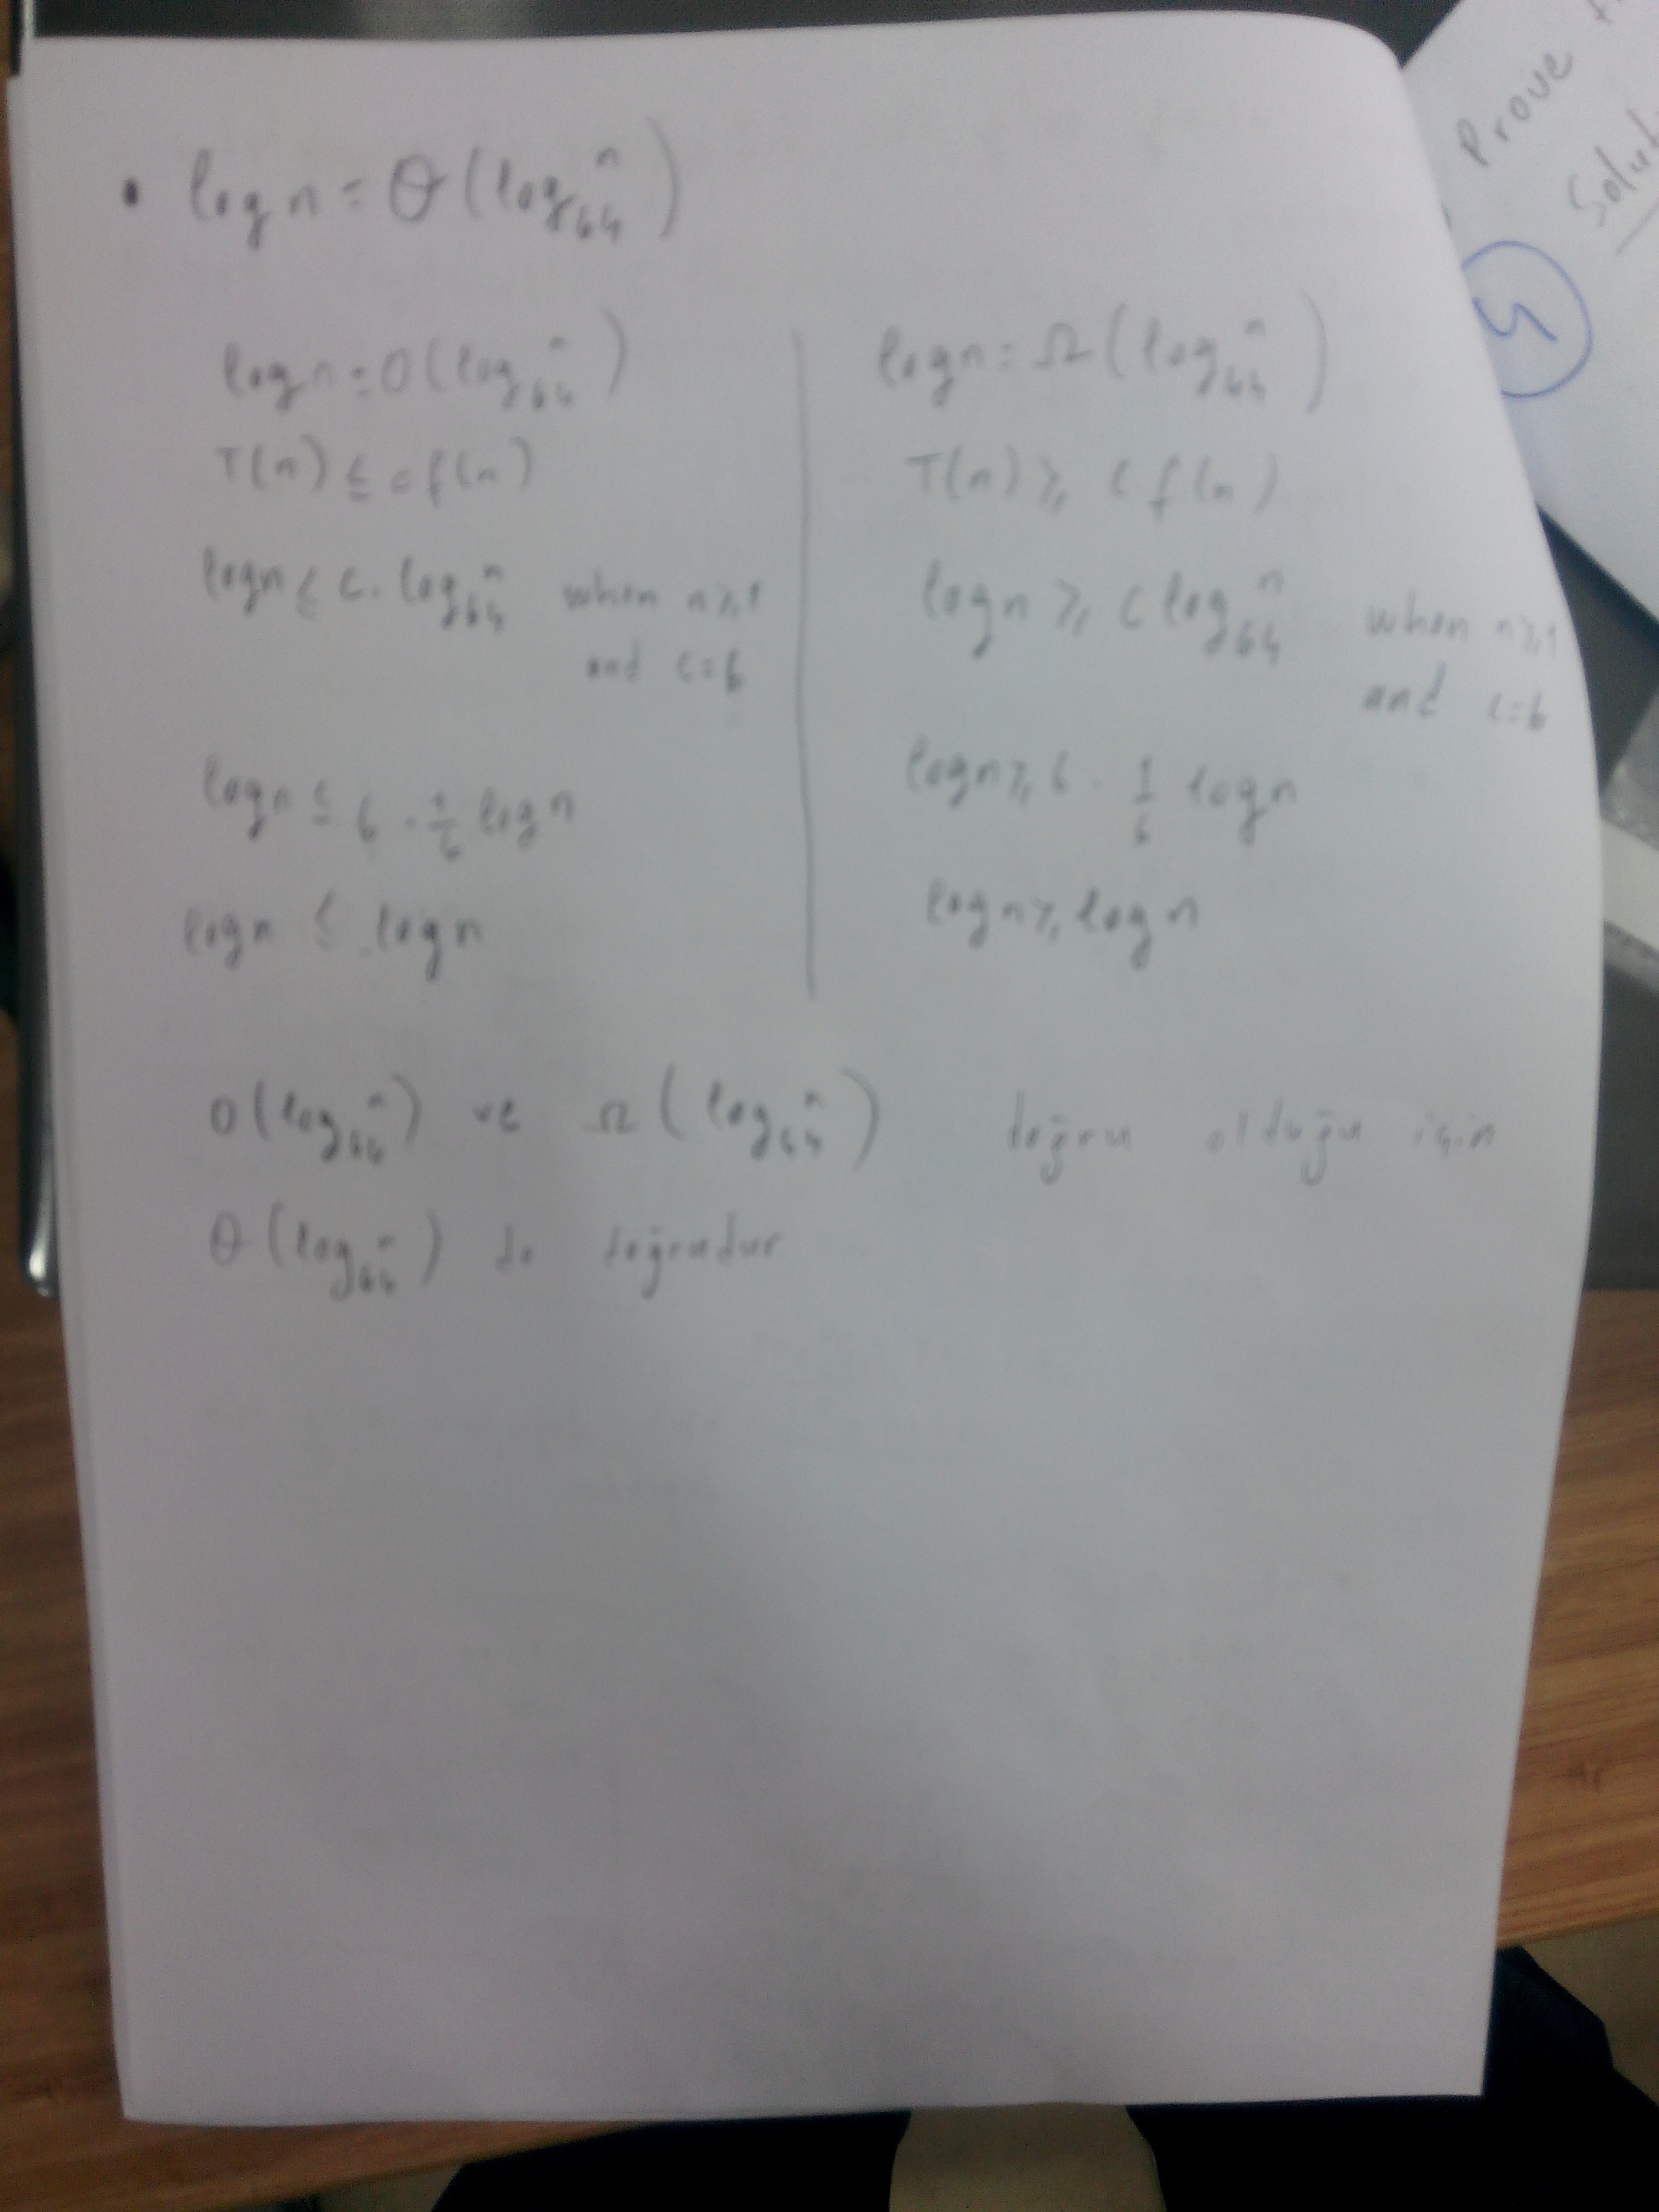 • log n = Θ(log₆₄ⁿ)
log n = O(log₆₄ⁿ)
T(n) ≤ c f(n)
log n ≤ c. log₆₄ⁿ when n ≥ 1
and c = 6
log n ≤ 6 . 1/6 log n
log n ≤ log n
log n = Ω(log₆₄ⁿ)
T(n) ≥ c f(n)
log n ≥ c log₆₄ⁿ when n ≥ 1
and c = 6
log n ≥ 6 . 1/6 log n
log n ≥ log n
O(log₆₄ⁿ) ve Ω(log₆₄ⁿ) doğru olduğu için
Θ(log₆₄ⁿ) de doğrudur
Prove
5